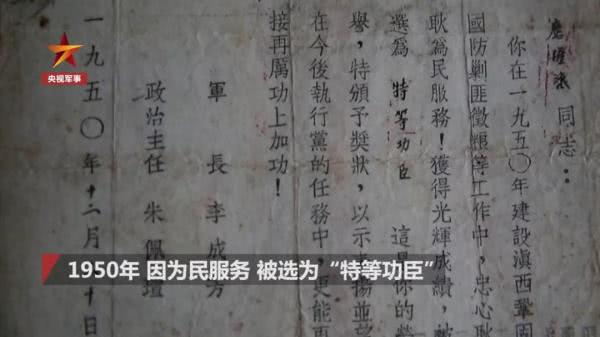 央视军事
同志：
你在一九五〇年建設滇西鞏固
國防剿匪徵粮等工作中，忠心耿
耿為民服務！獲得光輝成績，被
選為 特等功臣 這是你的榮
譽，特頒予獎狀，以示 揚並望
在今後執行黨的任務中，更能再
接再厲功上加功！
軍 長 李成
政治主任 朱佩
一九五〇年十二月 十日
1950年 因为民服务 被选为“特等功臣”